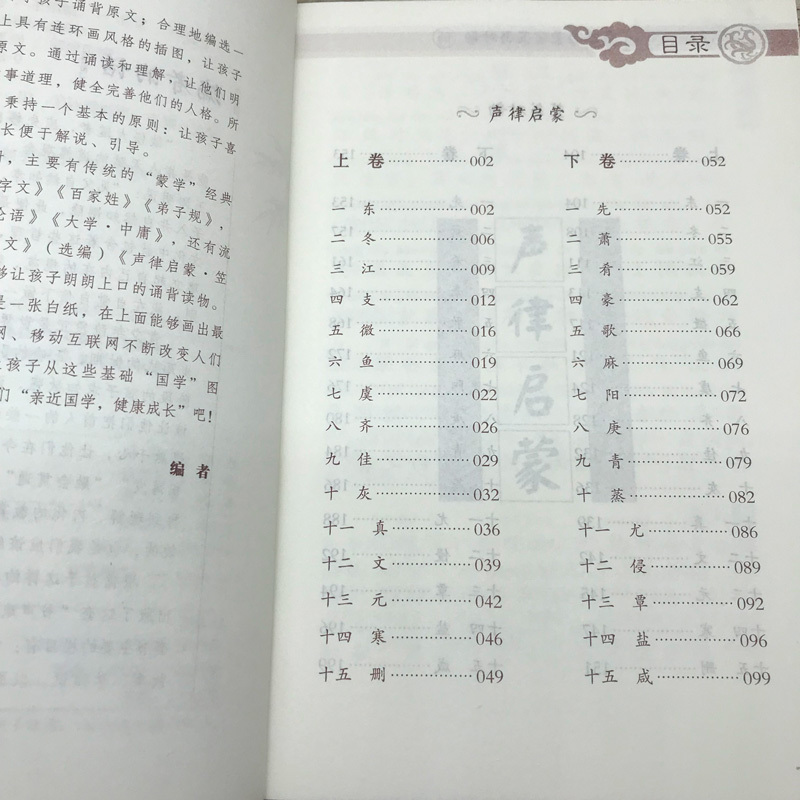 孩子诵背原文；合理地编选一
上具有连环画风格的插图，让孩子
原文。通过诵读和理解，让他们明
事道理，健全完善他们的人格。所
秉持一个基本的原则：让孩子喜
长便于解说、引导。
主要有传统的“蒙学”经典
字文》《百家姓》《弟子规》，
论语》《大学·中庸》，还有流
文》（选编）《声律启蒙·笠
够让孩子朗朗上口的诵背读物。
是一张白纸，在上面能够画出最
网、移动互联网不断改变人们
孩子从这些基础“国学”图
们“亲近国学，健康成长”吧！
编者
目录
声律启蒙
上 卷……………002
一 东……………002
二 冬……………006
三 江……………009
四 支……………012
五 微……………016
六 鱼……………019
七 虞……………022
八 齐……………026
九 佳……………029
十 灰……………032
十一 真……………036
十二 文……………039
十三 元……………042
十四 寒……………046
十五 删……………049
下 卷……………052
一 先……………052
二 萧……………055
三 肴……………059
四 豪……………062
五 歌……………066
六 麻……………069
七 阳……………072
八 庚……………076
九 青……………079
十 蒸……………082
十一 尤……………086
十二 侵……………089
十三 覃……………092
十四 盐……………096
十五 咸……………099
声律启蒙